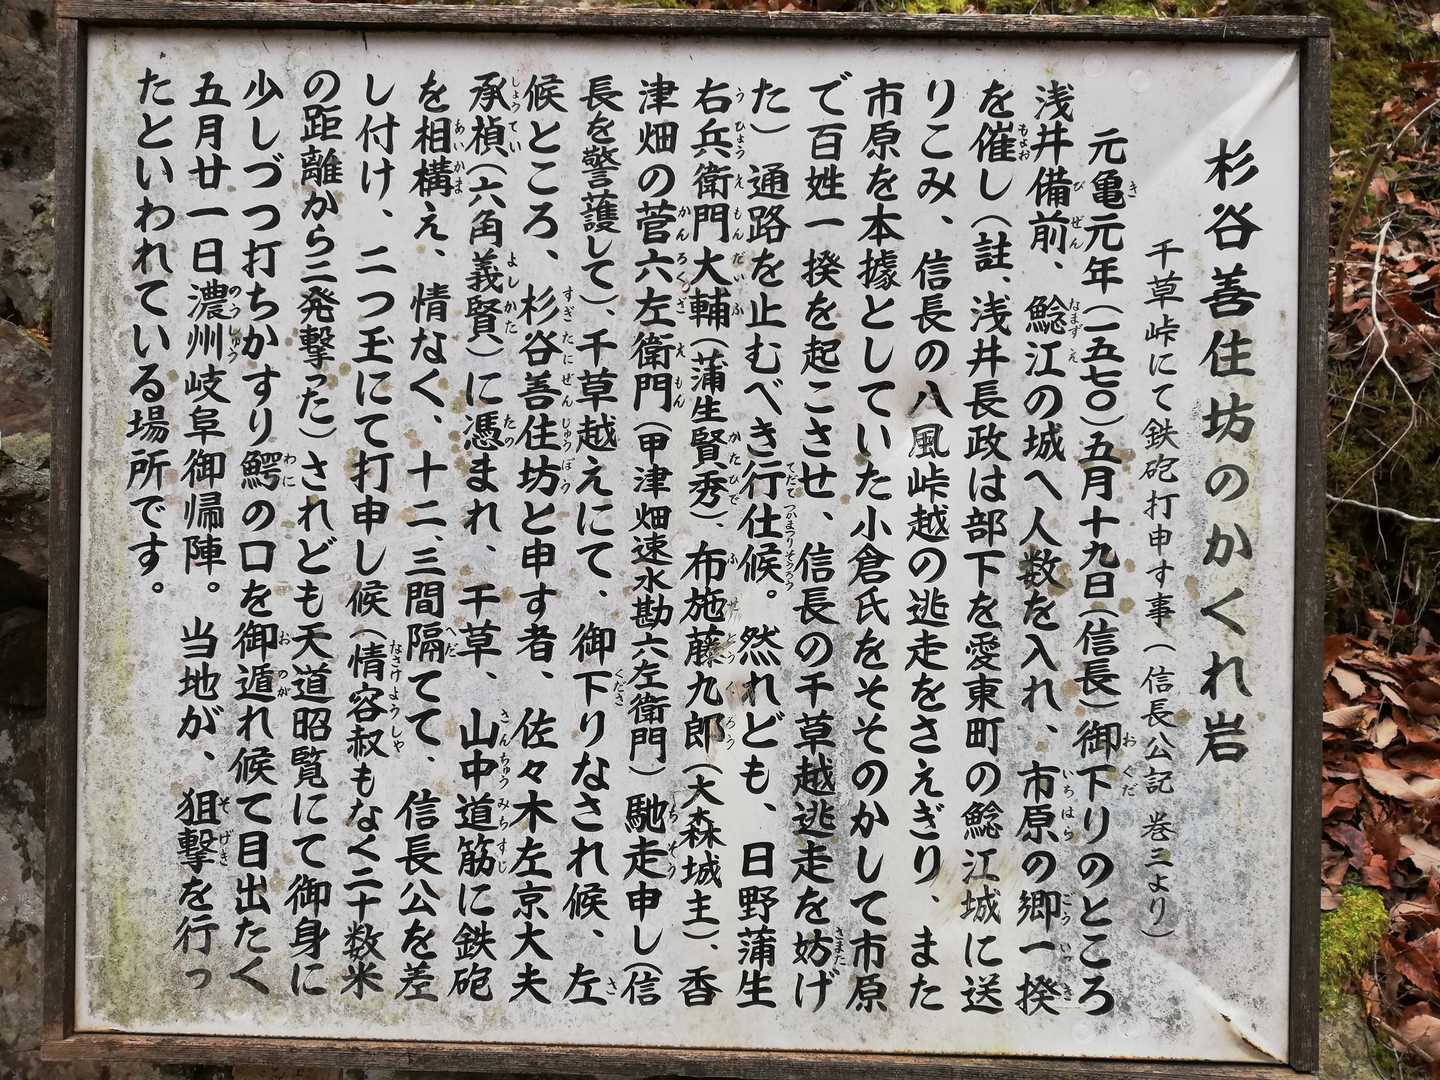 杉谷善住坊のかくれ岩
千草峠にて鉄砲打申す事(信長公記 巻三より)
元亀元年(一五七〇)五月十九日(信長)御下りのところ
浅井備前、鯰江の城へ人数を入れ、市原の郷一揆
を催し(註、浅井長政は部下を愛東町の鯰江城に送
りこみ、信長の八風峠越の逃走をさえぎり、また
市原を本據としていた小倉氏をそそのかして市原
で百姓一揆を起こさせ、信長の千草越逃走を妨げ
た)通路を止むべき行仕候。然れども、日野蒲生
右兵衛門大輔(蒲生賢秀)、布施藤九郎(大森城主)、香
津畑の菅六左衛門(甲津畑速水勘六左衛門)馳走申し(信
長を警護して)、千草越えにて、御下りなされ候、左
候ところ、杉谷善住坊と申す者、佐々木左京大夫
承禎(六角義賢)に憑まれ、千草、山中道筋に鉄砲
を相構え、情なく、十二、三間隔てて、信長公を差
し付け、二つ玉にて打申し候(情容叔もなく二十数米
の距離から二発撃った)されども天道昭覧にて御身に
少しづつ打ちかすり鰐の口を御遁れ候て目出たく
五月廿一日濃州岐阜御帰陣。当地が、狙撃を行っ
たといわれている場所です。